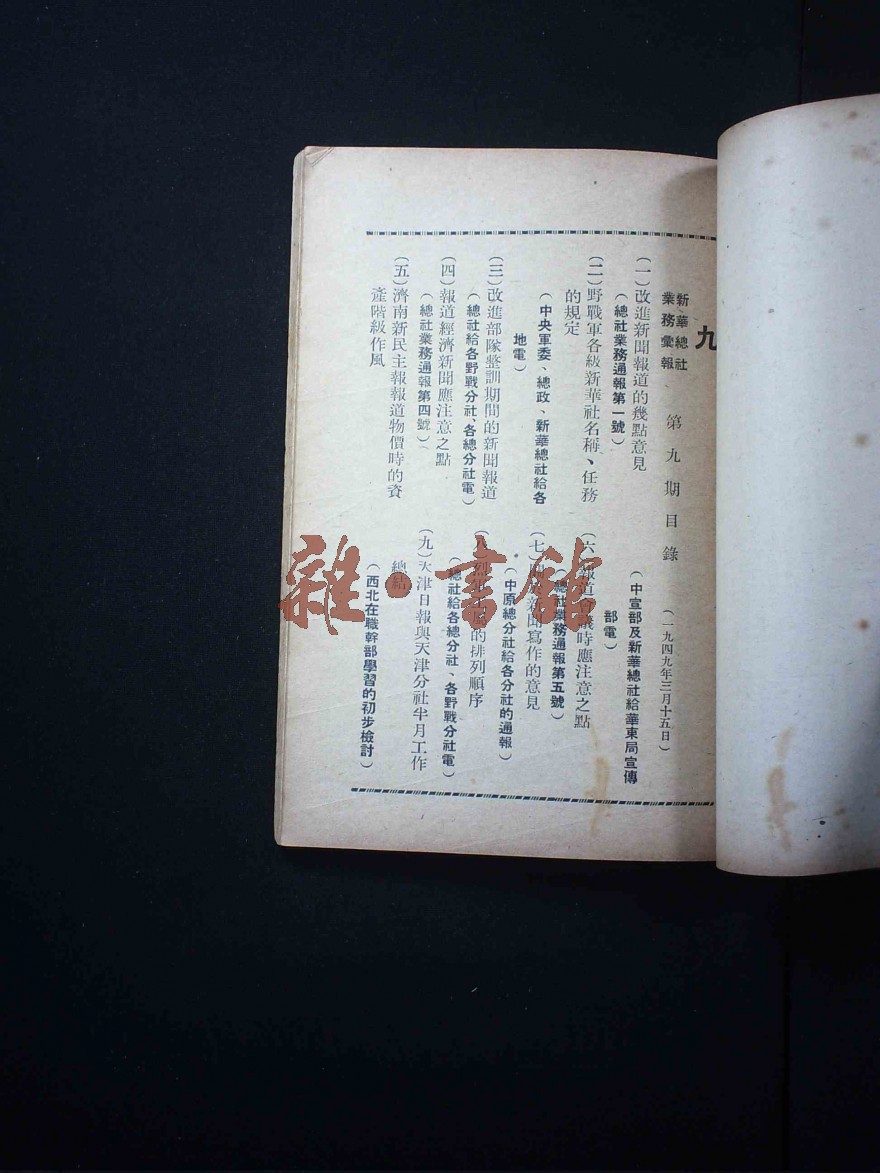 九
新華總社
業務彙報
第九期目錄
(一九四九年三月十五日)
(一)改進新聞報道的幾點意見
(總社業務通報第一號)
(二)野戰軍各級新華社名稱、任務
的規定
(中央軍委、總政、新華總社給各
地電)
(三)改進部隊整訓期間的新聞報道
(總社給各野戰分社、各總分社電)
(四)報道經濟新聞應注意之點
(總社業務通報第四號)
(五)濟南新民主報報道物價時的資
產階級作風
(中宣部及新華總社給華東局宣傳
部電)
(六)報道會議時應注意之點
總社業務通報第五號)
(七)關於新聞寫作的意見
(中原總分社給各分社的通報)
的排列順序
(總社給各總分社、各野戰分社電)
(九)天津日報與天津分社半月工作
總結
(西北在職幹部學習的初步檢討)
雜·書館